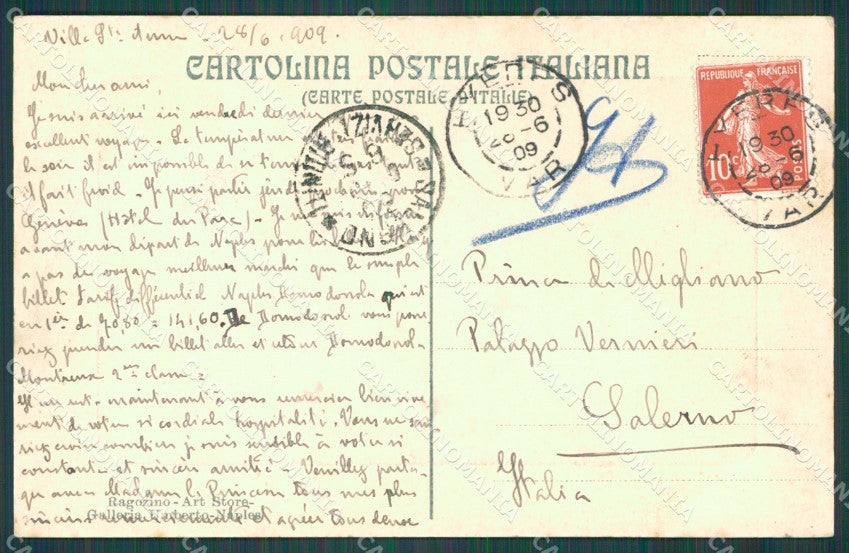 Villa Ste Anne - 28/6 - 909.
CARTOLINA POSTALE ITALIANA
(CARTE POSTALE D'ITALIE)
Mon cher ami,
Je suis arrivé ici vendredi dernier
excellent voyage. La température
le soir il est impossible de
il fait froid. Je pense partir jeudi prochain pour
Genève (Hôtel du Parc). Je
avant mon départ de Naples pour
a pas de voyage meilleur marché que le simple
billet tarif différentiel Naples Domodossola qui est
en 1ère de 70.80 = 141,60. De Domodossola vous pour
riez prendre un billet aller et retour Domodossola
Montreux 2me classe.
maintenant à vous remercier bien vive
ment de votre si cordiale hospitalité. Vous ne sau
riez croire combien je suis sensible à votre si
constante et sincère amitié. Veuillez parta-
ger avec Madame la Princesse tous mes plus
sincères et agréer tous deux
Ragozino - Art Store -
Galleria Umberto - Naples
HYERES
19 30
28 -6
09
VAR
REPUBLIQUE FRANÇAISE
10c
POSTES
HYERES
19 30
28 -6
09
VAR
Prince di Migliano
Palazzo Vernieri
Salerno
Italia
CARTOLINOMANIA